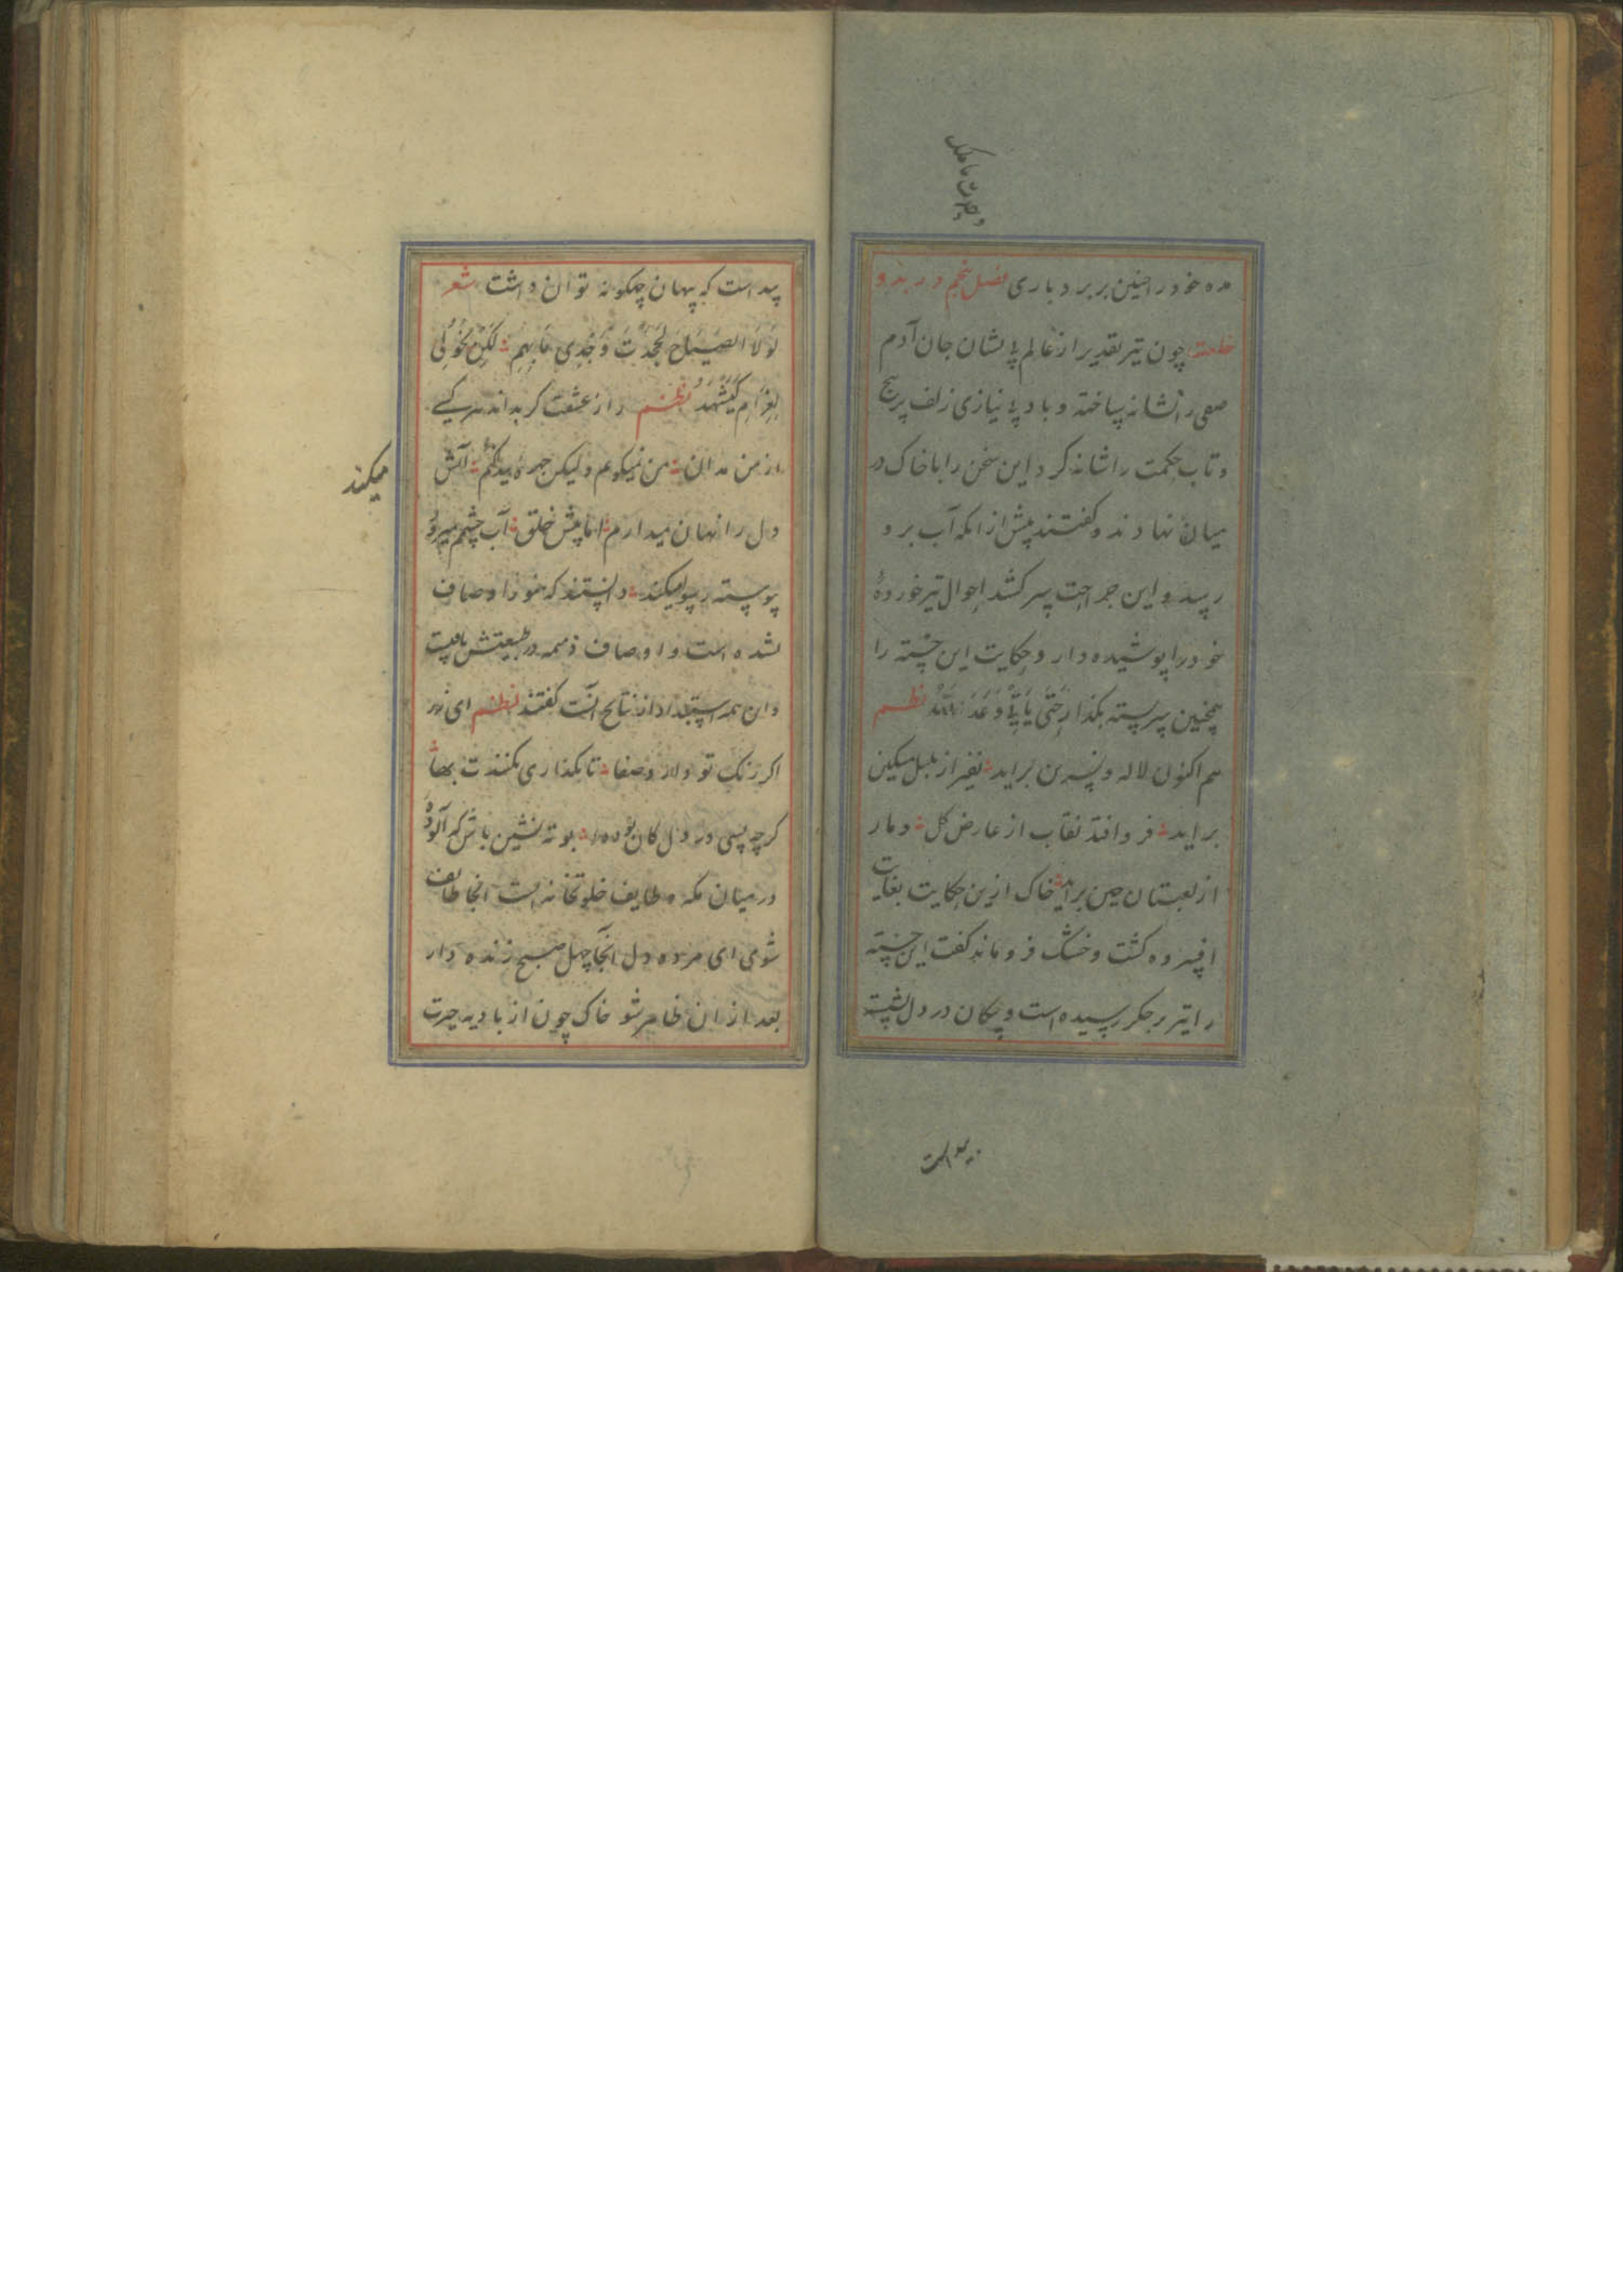 مده خود را چنین بر بردباری فصل پنجم در بدو
خلقت چون تیر تقدیر از عالم بی نشان جان آدم
صفی را نشانه ساخته و باد بی نیازی زلف پر پیچ
و تاب حکمت را شانه کرد این سخن را با خاک در
میان نهادند و گفتند پیش از آنکه آب برو
رسد و این جراحت سر کشد احوال تیر خورده
خود را پوشیده دار و حکایت این خسته را
همچنین سربسته بگذار حَتّی یَأتِیَ وَعدُ اللهِ نظم
هم اکنون لاله و نسرین براید نفیر از بلبل مسکین
براید فرو افتد نقاب از عارض گل دمار
از لعبتان چین براید خاک ازین حکایت بغایت
افسرده گشت و خشک فرو ماند گفت این خسته
را تیر بر جگر رسیده است و پیکان در دل نشسته
پیداست که پنهان چگونه توان داشت شعر
لَولَا الصَیاح لَجَحَدتَ وَجدِی مَا بِهِم لَکِن نُحُولِی
لِغَرَامِ کَیَشهَدُ نظم راز عشقت گر بداند هر کسی
از من مدان من نمیگویم ولیکن چهره پیدا آتش
میکند
دل را نهان میدارم اما پیش خلق آب چشمم میرود
پیوسته رسوا میکند دانستند که خود را وصاف
شده است و اوصاف ذمیمه در طبیعتش یافت
و این همه استبداد از نتایج آنست گفتند نظم ای زر
اگر رنگ تو دلارد صفا تا بگذاری نکنندت بها
گرچه بسی در دل کان بوده بوته نشین باش که آلوده
در میان مکه و طایف خلوتخانه است آنجا طایف
شوی ای مرده دل آنجا چهل صبح زنده دار
بعد از ان ظاهر شو خاک چون از بادیه حیرت